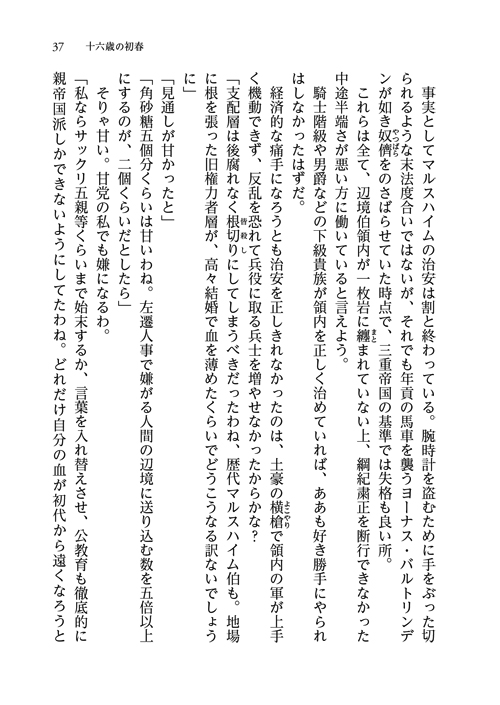 37　十六歳の初春
　事実としてマルスハイムの治安は割と終わっている。腕時計を盗むために手をぶった切
られるような末法度合いではないが、それでも年貢の馬車を襲うヨーナス・バルトリンデ
ンが如き奴儕をのさばらせていた時点で、三重帝国の基準では失格も良い所。
　これらは全て、辺境伯領内が一枚岩に纏まれていない上、綱紀粛正を断行できなかった
中途半端さが悪い方に働いていると言えよう。
　騎士階級や男爵などの下級貴族が領内を正しく治めていれば、ああも好き勝手にやられ
はしなかったはずだ。
　経済的な痛手になろうとも治安を正しきれなかったのは、土豪の横槍で領内の軍が上手
く機動できず、反乱を恐れて兵役に取る兵士を増やせなかったからかな？
「支配層は後腐れなく根切りにしてしまうべきだったわね、歴代マルスハイム伯も。地場
に根を張った旧権力者層が、高々結婚で血を薄めたくらいでどうこうなる訳ないでしょう
に」
「見通しが甘かったと」
「角砂糖五個分くらいは甘いわね。左遷人事で嫌がる人間の辺境に送り込む数を五倍以上
にするのが、二個くらいだとしたら」
　そりゃ甘い。甘党の私でも嫌になるわ。
「私ならサックリ五親等くらいまで始末するか、言葉を入れ替えさせ、公教育も徹底的に
親帝国派しかできないようにしてたわね。どれだけ自分の血が初代から遠くなろうと
やつばら
まと
よこやり
皆殺し